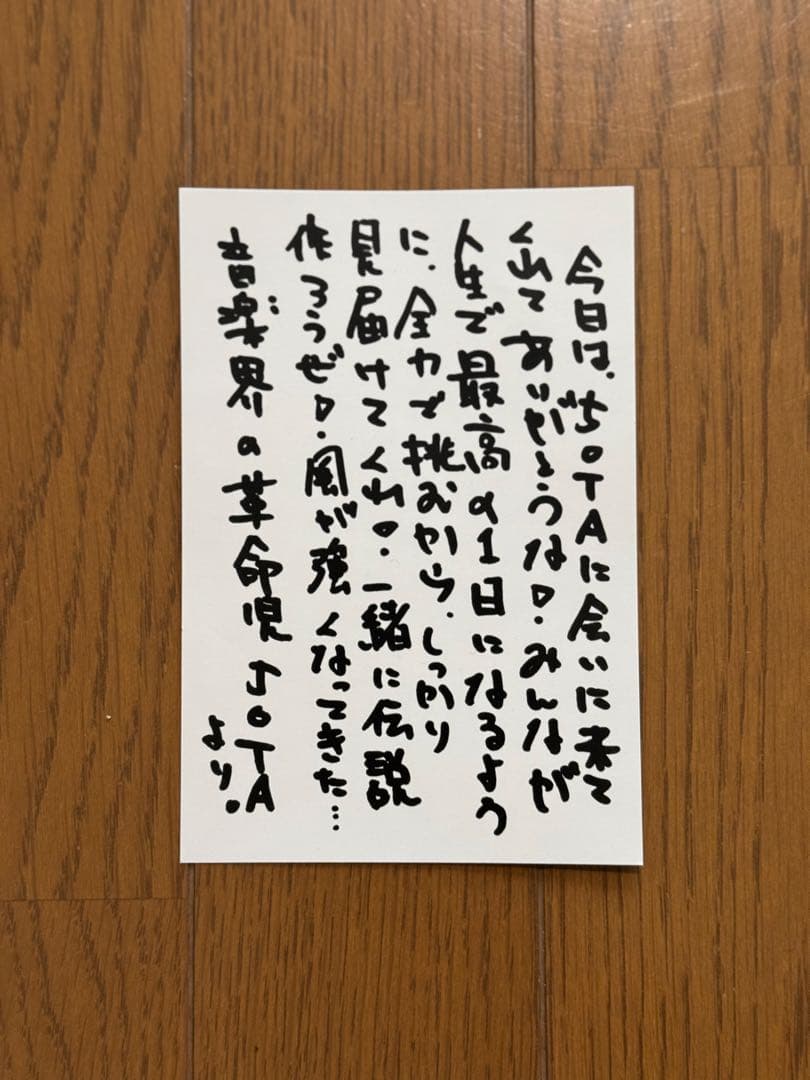 今日は、SOTAに会いに来て
くれてありがとうな。みんなが
人生で最高の1日になるよう
に、全力で挑むから、しっかり
見届けてくれ。一緒に伝説
作ろうぜ。風が強くなってきた…
音楽界の革命児SOTA
より。